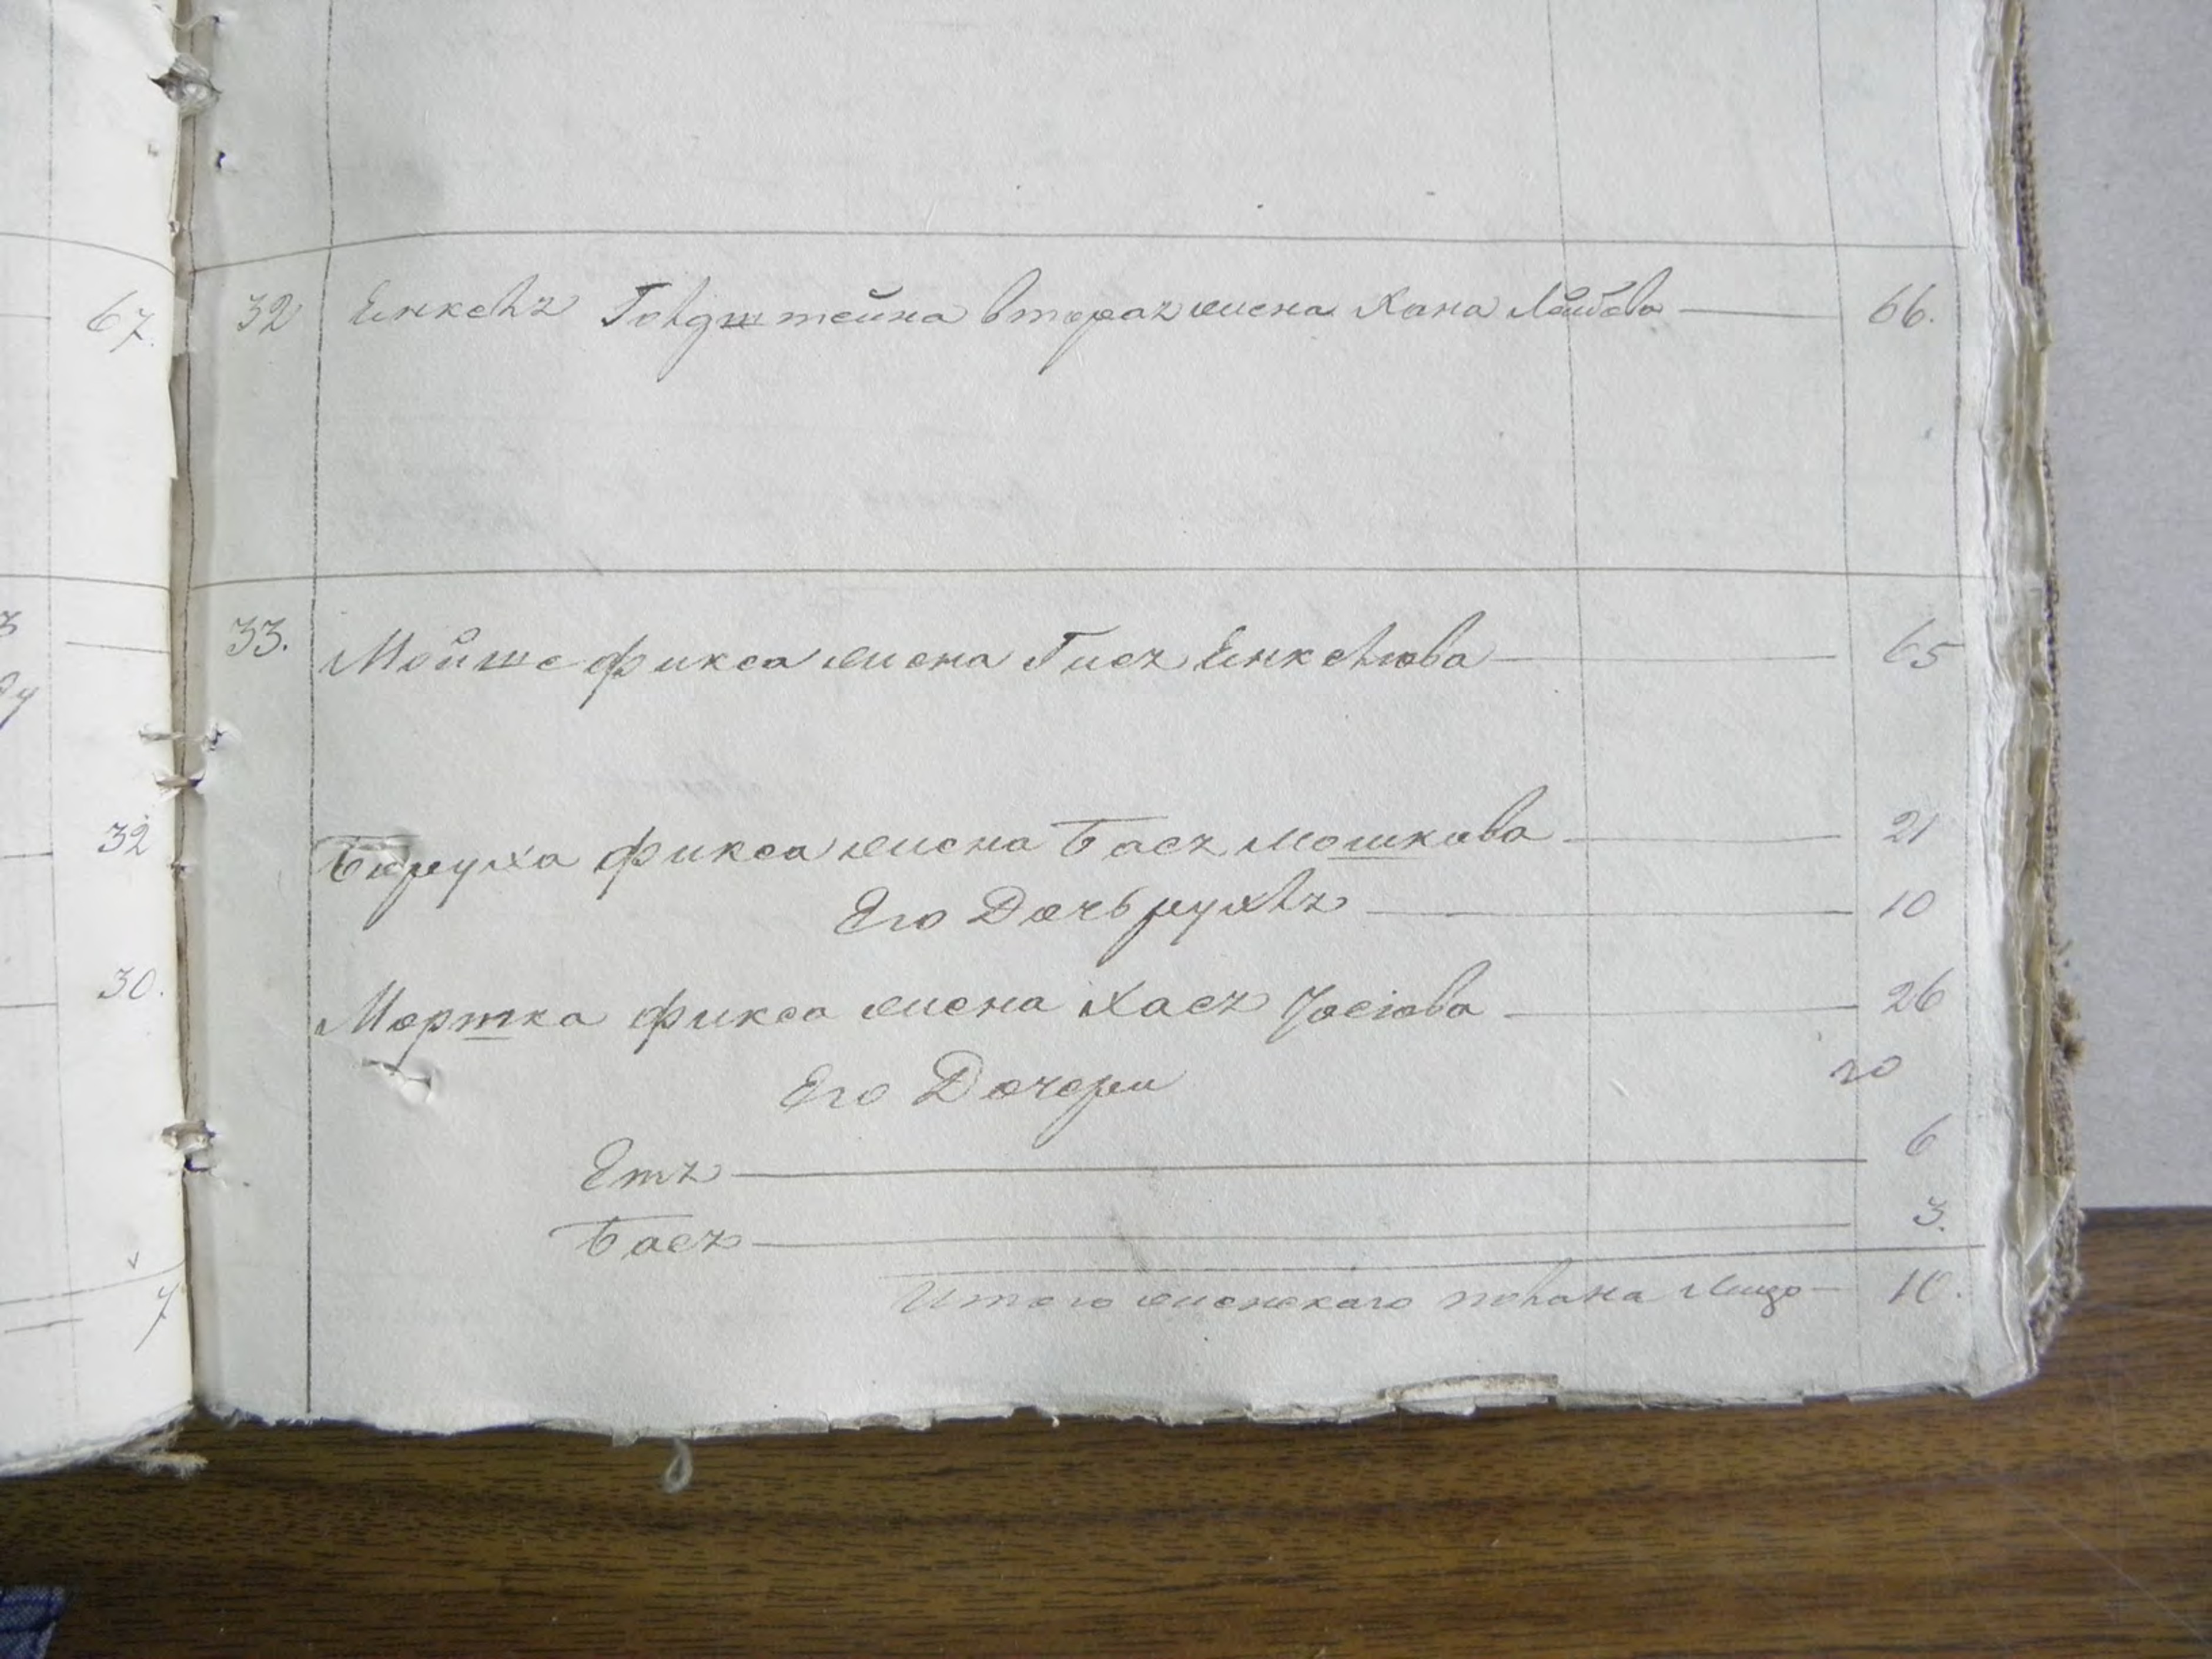 67.
32
30.
7
32 Енкеля Голдштейна вторая жена Хана Лейбова — 66.
33. Мойше Фикса жена Гися Енкелюва — 65
Боруха Фикса жена Бася Мошкова — 21
Его Дочь Рухля — 10
Мортка Фикса жена Хася Іосіова — 26
Его Дочери го
Етя — 6
Бася — 3.
Итого женскаго полана Лицо — 10.